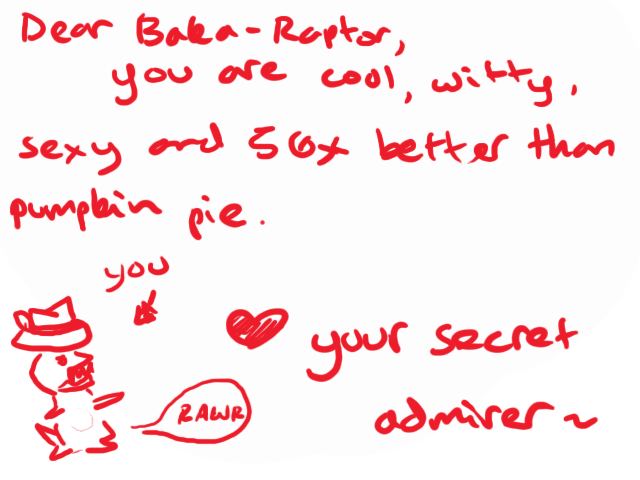 Dear Baka-Raptor,
you are cool, witty,
sexy and 50x better than
pumpkin pie.
you
your secret
admirer~
RAWR